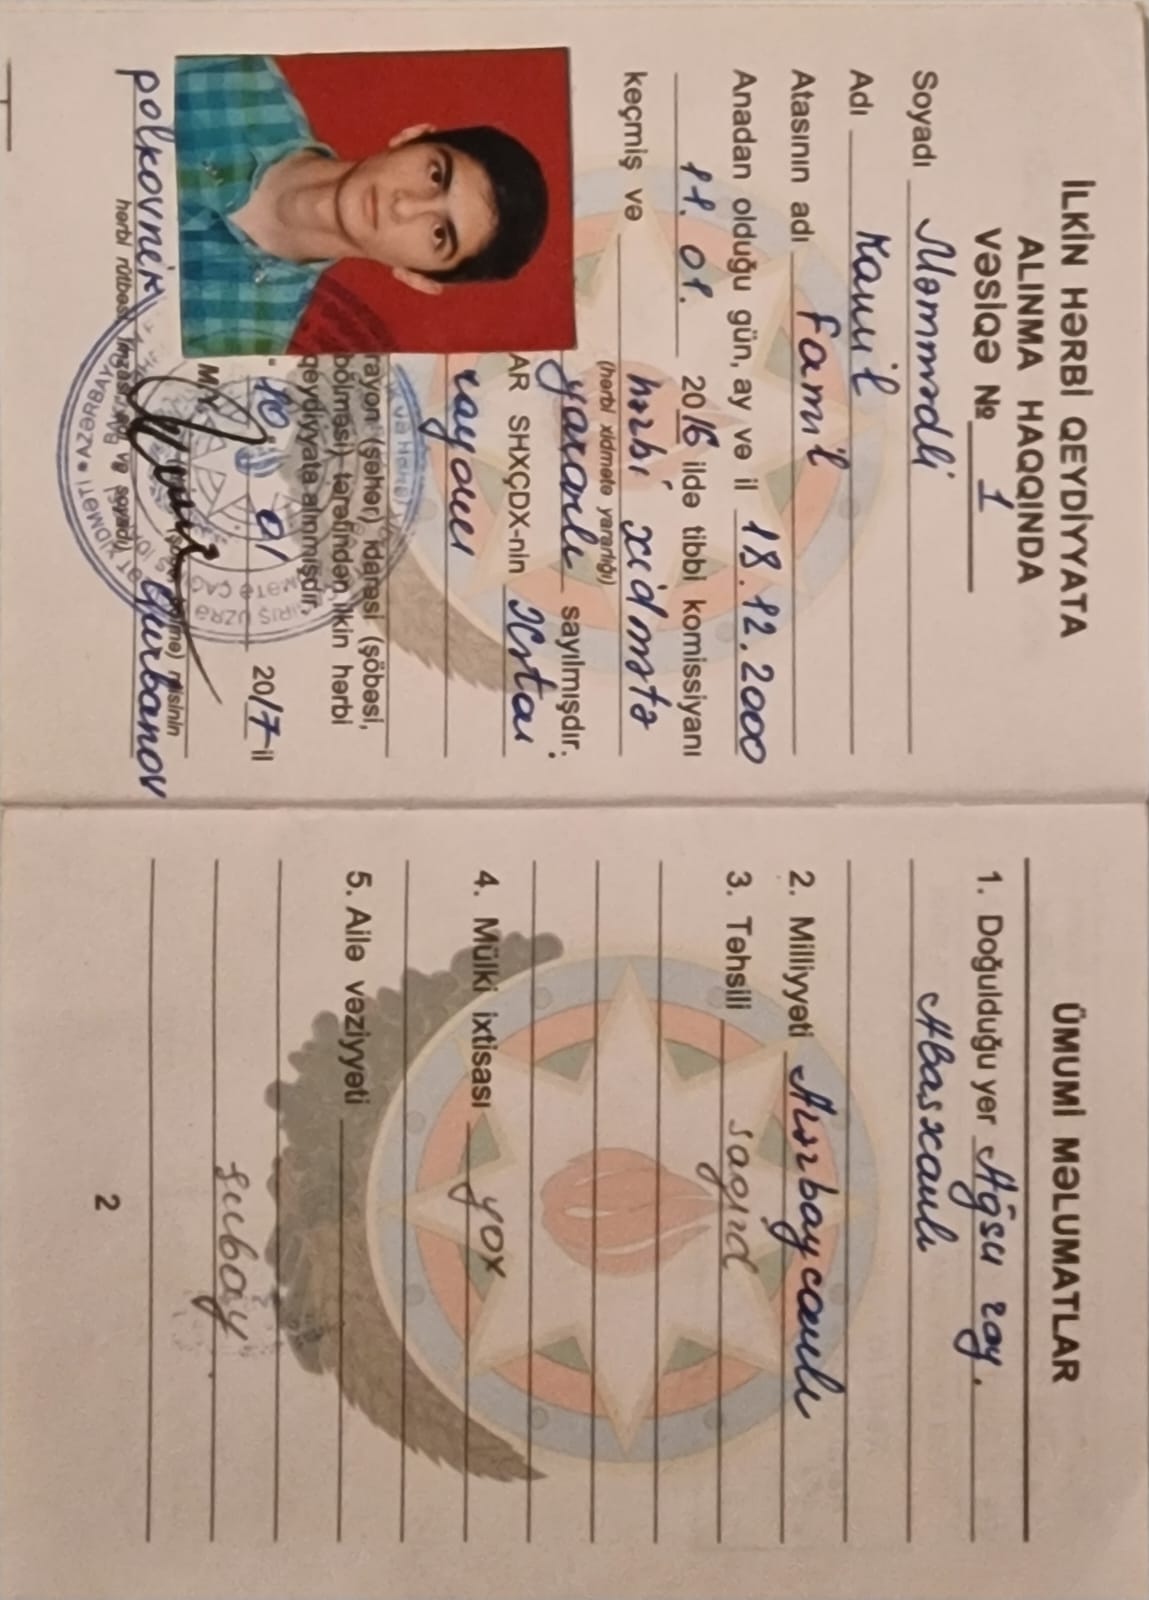 İLKİN HƏRBİ QEYDİYYATA
ALINMA HAQQINDA
VƏSİQƏ № 1
Soyadı Məmmədli
Adı Kamil
Atasının adı Famil
Anadan olduğu gün, ay və il 18.12.2000
11. 01. 2016 ildə tibbi komissiyanı
keçmiş və hərbi xidmətə
(hərbi xidmətə yararlığı)
yararlı sayılmışdır.
AR SHXÇDX-nin
rayonu
rayon (şəhər) idarəsi (şöbəsi,
bölməsi) tərəfindən ilkin hərbi
qeydiyyata alınmışdır.
10 01 2017 il
M.Y.
rəisinin
polkovnik Qurbanov
hərbi rütbəsi, imzası, adı və soyadı)
ÜMUMİ MƏLUMATLAR
1. Doğulduğu yer Ağsu ray.
Abasxanlı
2. Milliyyəti Azərbaycanlı
3. Təhsili şagird
4. Mülki ixtisası yox
5. Ailə vəziyyəti
subay
2